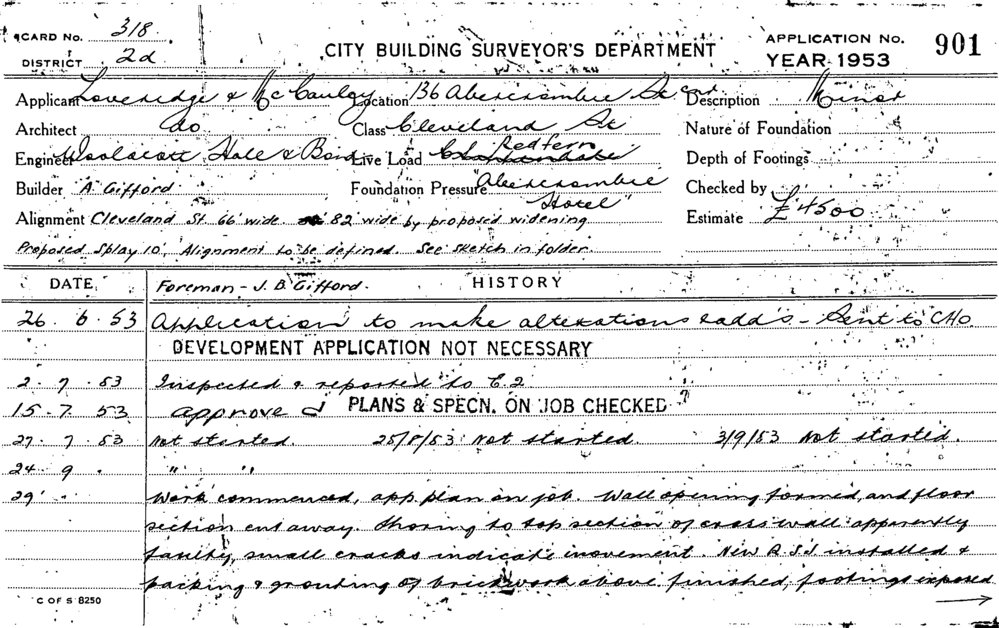 CARD No. 318
DISTRICT 2d
CITY BUILDING SURVEYOR'S DEPARTMENT
APPLICATION No. 901
YEAR 1953
Applicant Loveridge & McCauley Location 136 Abercrombie St cnr Description Minor
Architect do Class Cleveland St Nature of Foundation
Engineer Woolacott Hale & Bond Live Load Redfern Depth of Footings
Builder A Gifford Foundation Pressure "Abercrombie Hotel" Checked by
Alignment Cleveland St. 66' wide 82' wide by proposed widening Estimate £4500
Proposed Splay 10, Alignment to be defined. See sketch in folder
DATE Foreman - J. B Gifford. HISTORY
26 . 6 . 53 Application to make alterations & add's - Sent to CHO
DEVELOPMENT APPLICATION NOT NECESSARY
2 . 7 . 53 Inspected & reported to E.2
15 . 7 . 53 approved PLANS & SPECN. ON JOB CHECKED
27 . 7 . 53 Not started. 25/8/53 Not started. 3/9/53 Not started.
24 . 9 . " "
29 " Work commenced, app. plan on job. Wall opening formed, and floor
section cut away. Shoring to top section of cross wall apparently
faulty, small cracks indicate movement. New R.S.J installed &
packing & grouting of brickwork above finished, footings exposed
C OF S 8250